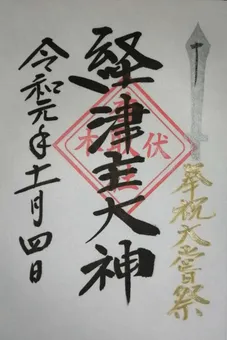 奉祝大嘗祭
経津主大神
令和元年十一月四日